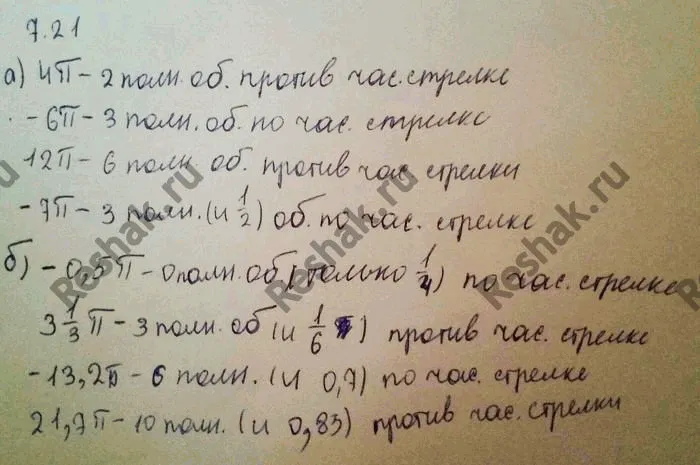 7.21
а) 4π – 2 полн. об. против час. стрелке
- 6π – 3 полн. об. по час. стрелке
12π – 6 полн. об. против час. стрелки
- 7π – 3 полн. (и 1/2) об. по час. стрелке
б) - 0,5π – 0 полн. об (только 1/4) по час. стрелке
3 1/3 π – 3 полн. об (и 1/6) против час. стрелке
- 13,2π – 6 полн. (и 0,7) по час. стрелке
21,7π – 10 полн. (и 0,83) против час. стрелки
Reshak.ru
Reshak.ru
Reshak.ru
Reshak.ru